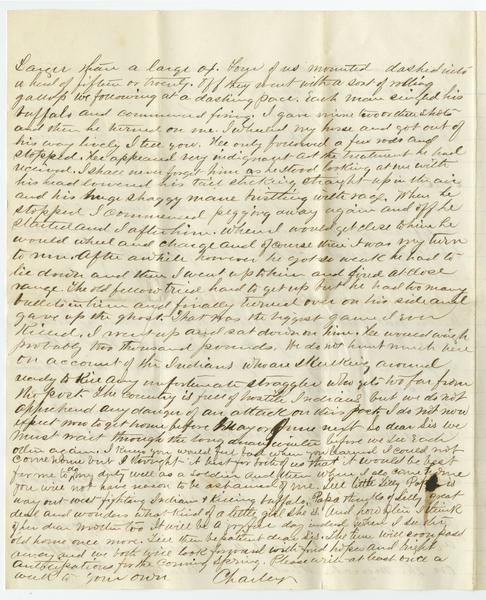 Larger than a large ox. Four of us mounted dashed into
a herd of fifteen or twenty. Off they went with a sort of rolling
gallop we following at a dashing pace. Each man singled his
buffalo and commenced firing. I gave mine two or three shots
and then he turned on me. I wheeled my horse and got out of
his way lively I tell you. He only followed a few rods and
stopped. He appeared very indignant at the treatment he had
received. I shall never forget him as he stood looking at me with
his head lowered his tail sticking straight up in the air
and his huge shaggy mane bristling with rage. When he
stopped I commenced pegging away again and off he
started and I after him. When I would get close to him he
would wheel and charge and of course then it was my turn
to run. After awhile however he got so weak he had to
lie down and then I went up to him and fired at close
range. The old fellow tried hard to get up but he had too many
bullets in him and finally turned over on his side and
gave up the ghost. That was the biggest game I ever
killed. I went up and sat down on him. He would weigh
probably two thousand pounds. We do not hunt much here
on account of the Indians who are skulking around
ready to kill any unfortunate straggler who gets too far from
the post. The country is full of hostile Indians but we do not
apprehend any danger of an attack on this post. I do not now
expect now to get home before May or June next so dear Lis we
must wait through the long dreary winter before we see each
other again. I knew you would feel bad when you learned I could not
come home but I thought it best for both of us that it would be best
for me to do my duty well as a soldier and then when I do come home
you will not have reason to be ashamed of me. Tell little Lilly Papa is
way out west fighting Indians & killing buffalo. Papa thinks of Lilly a great
deal and wonders what kind of a little girl she is. And how often I think
of her dear mother too. It will be a joyful day indeed when I see my
old home once more. Then be patient dear Lis. The time will soon pass
away and we both will look forward with fond hopes and bright
anticipations for the coming Spring. Please write at least once a
week to your own Charley